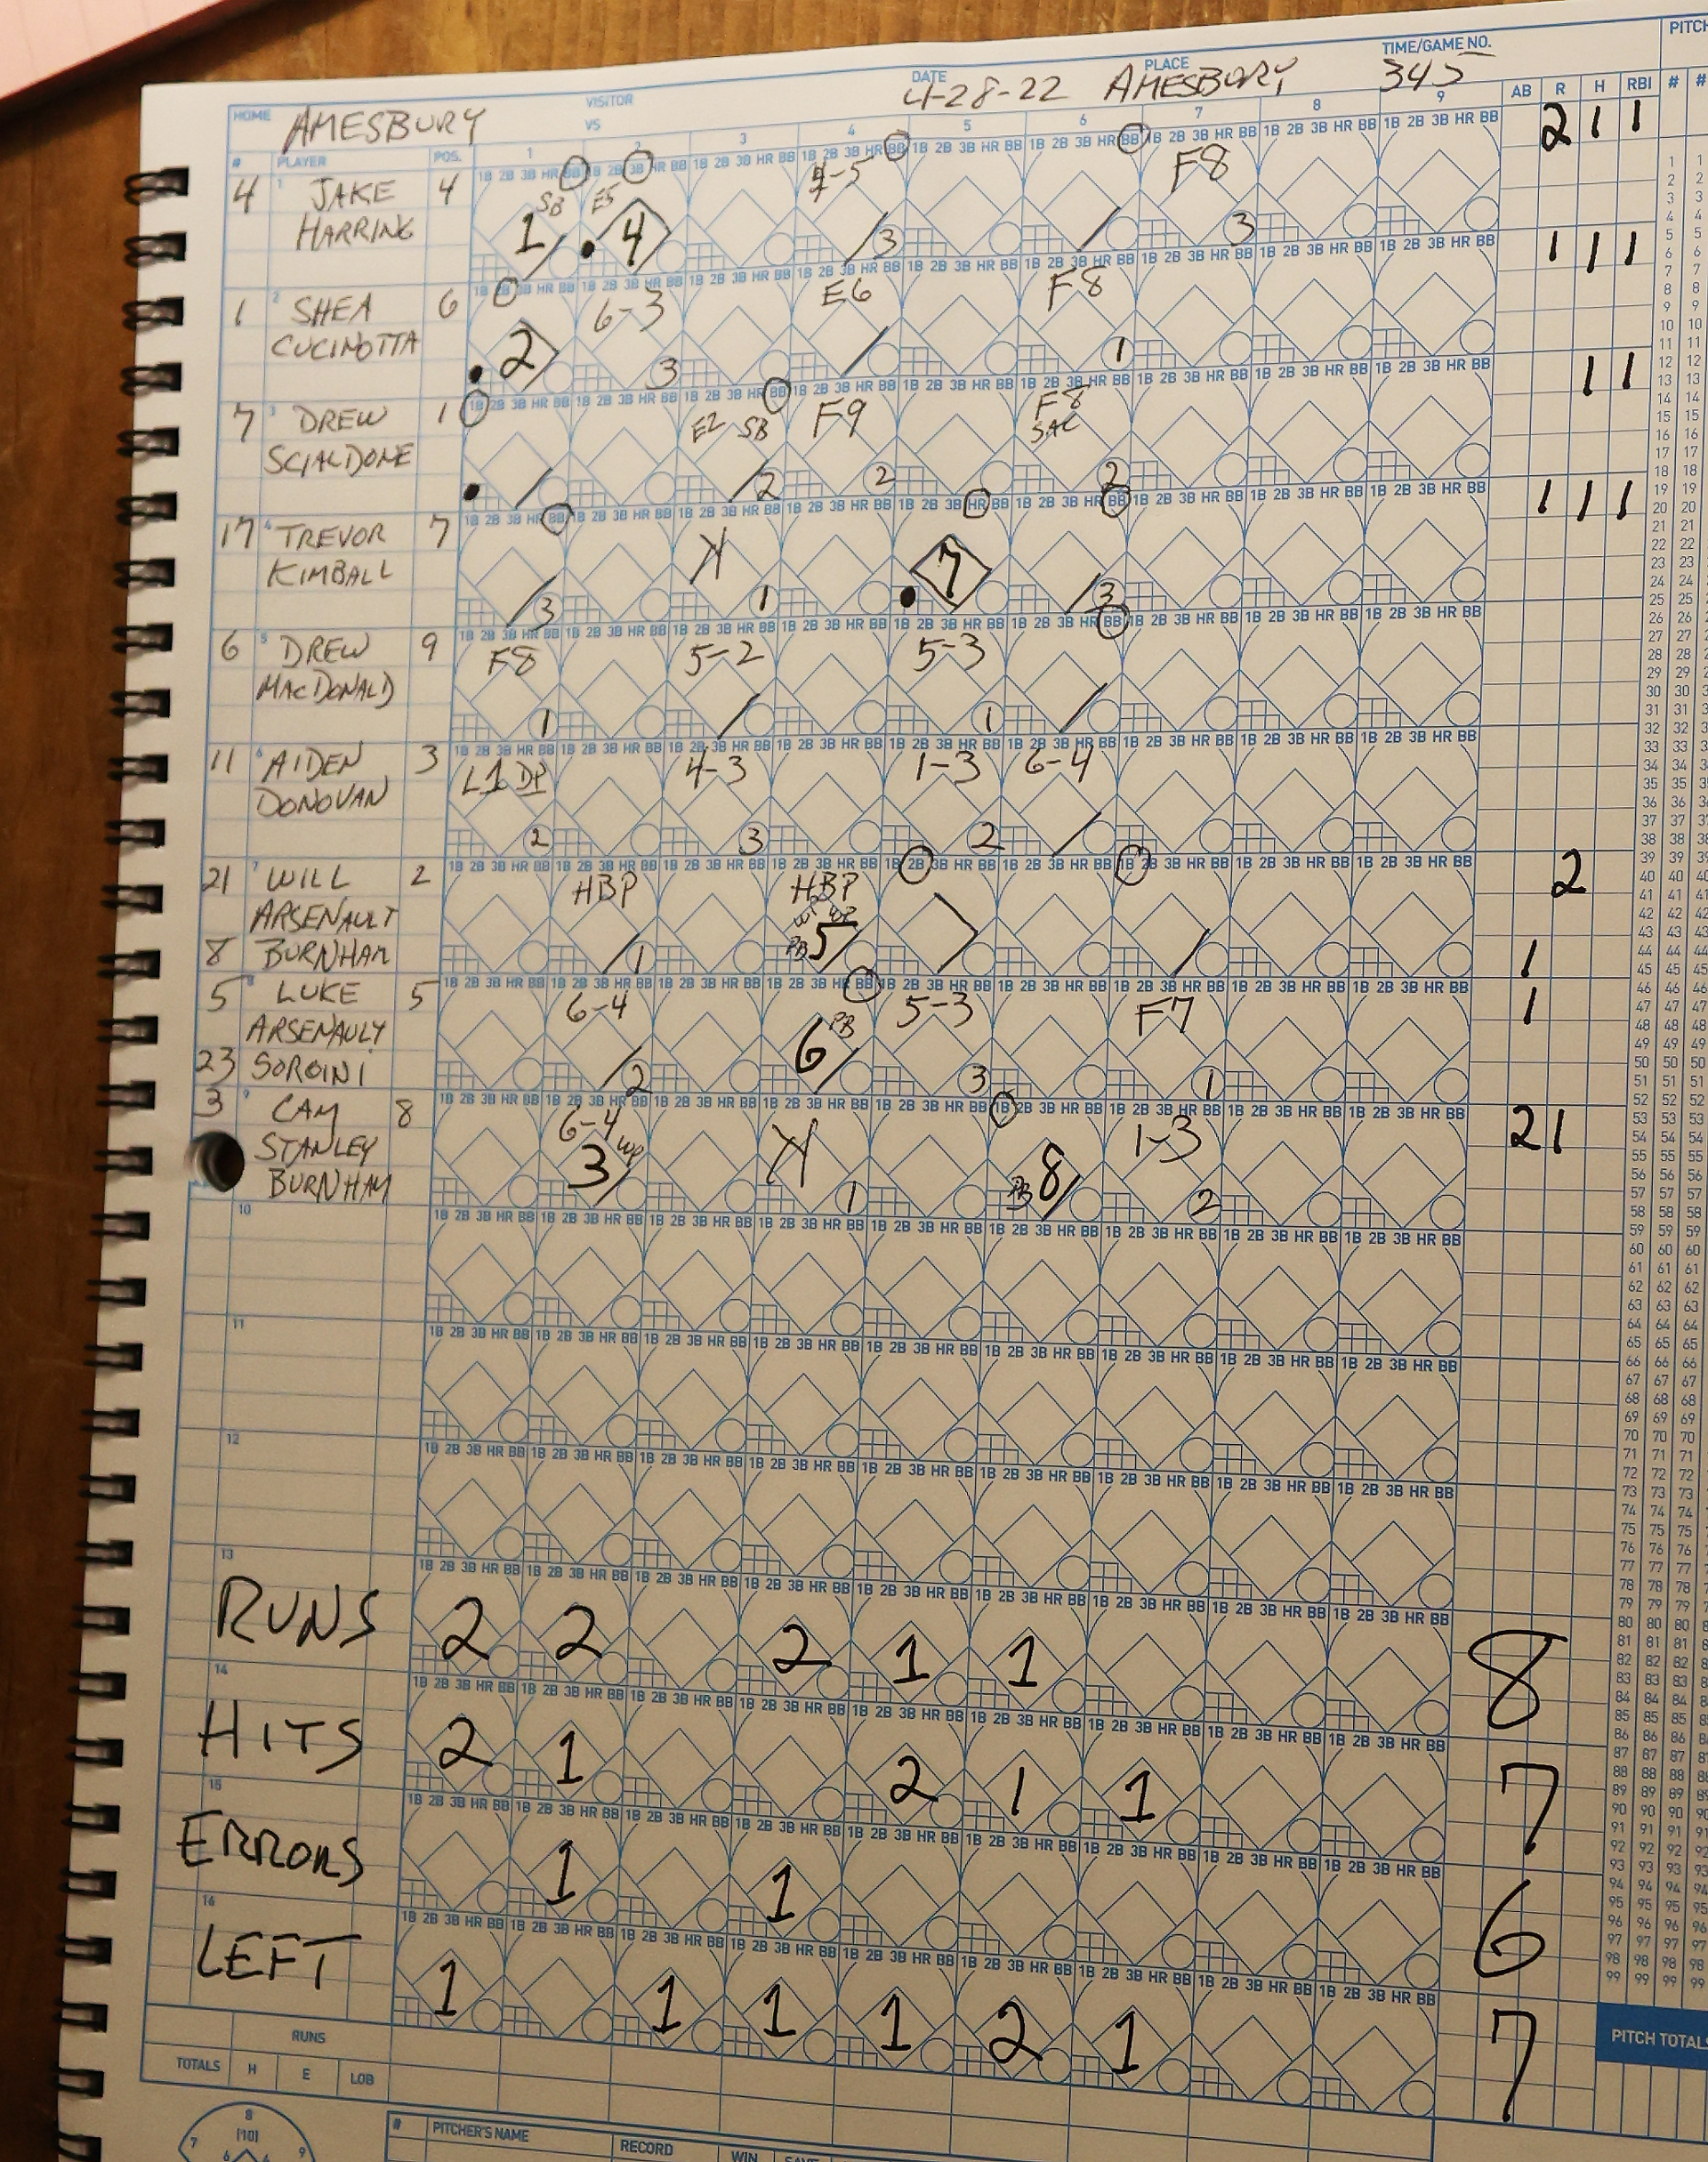 TIME/GAME NO.
DATE PLACE
PITCH
4-28-22 AMESBURY 345
HOME AMESBURY VISITOR
VS
# PLAYER POS. 1 2 3 4 5 6 7 8 9 AB R H RBI # #
4 1 JAKE HARRING 4
SB E5 4-5 F8
1 4 3 3
2 1 1
1 2 SHEA CUCINOTTA 6
6-3 E6 F8
2 3 1
1 1 1
7 3 DREW SCIALDONE 1
E2 SB F9 F8 SAC
2 2 2
1 1
17 4 TREVOR KIMBALL 7
K 7
3 1 3
1 1 1
6 5 DREW MACDONALD 9
F8 5-2 5-3
1 1
11 6 AIDEN DONOVAN 3
L1 DP 4-3 1-3 6-4
2 3 2
21 7 WILL ARSENAULT 2
8 BURNHAM
HBP HBP
WP WP
1 PB 5
2
1
5 8 LUKE ARSENAULY 5
23 SOROINI
6-4 PB 5-3 F7
2 6 3 1
1
3 9 CAM STANLEY BURNHAM 8
6-4 WP K 1-3
3 1 PB 8 2
2 1
10
11
12
13
RUNS 2 2 2 1 1 8
14
HITS 2 1 2 1 1 7
15
ERRORS 1 1 6
16
LEFT 1 1 1 1 2 1 7
RUNS
TOTALS H E LOB
PITCH TOTALS
# PITCHER'S NAME RECORD WIN SAVE
8
[10]
7 9
6 4